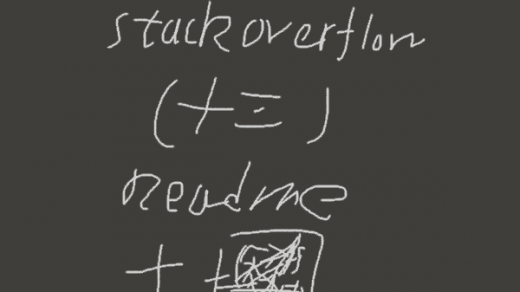 stackoverflow
(十三)
readme